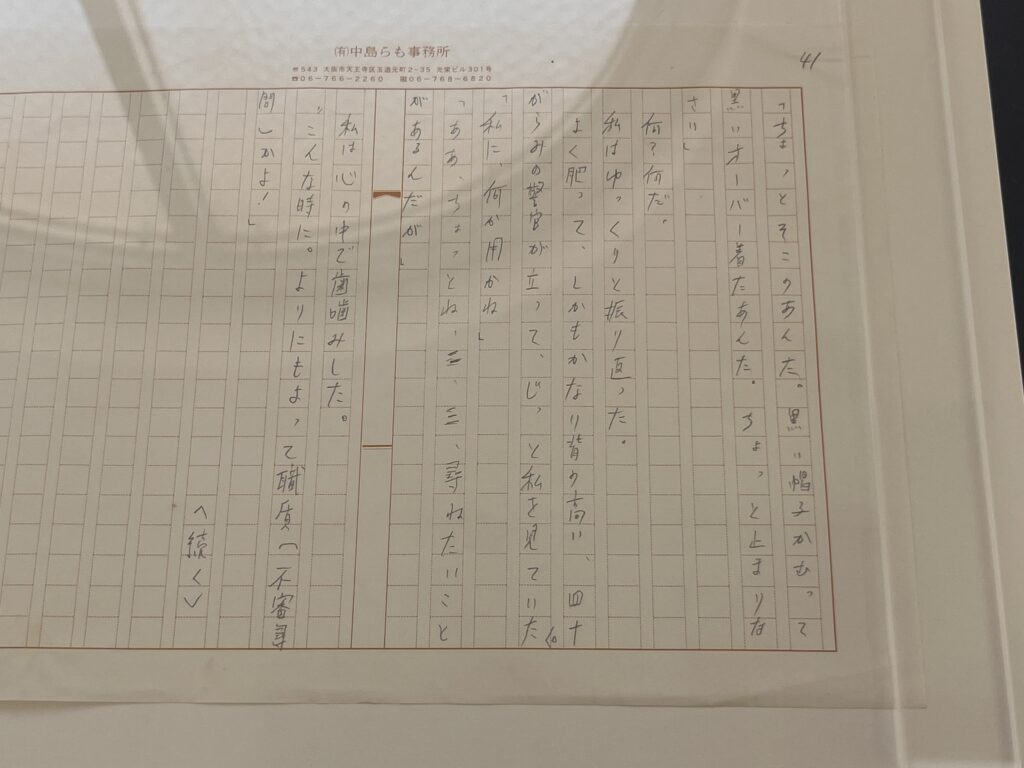 (有)中島らも事務所
〒543 大阪市天王寺区玉造元町2-35 光榮ビル301号
☎06-766-2260 📠06-768-6820
41
「ちょっとそこのあんた。黒い帽子かむって
黒いオーバー着たあんた。ちょっと止まりな
さい」
何？何だ。
私はゆっくりと振り直った。
よく肥って、しかもかなり背の高い、四十
がらみの警官が立って、じっと私を見ていた。
「私に、何か用かね」
「ああ、ちょっとね、二、三、尋ねたいこと
があるんだが」
私は心の中で歯噛みした。
〝こんな時に。よりにもよって職質（不審尋
問）かよ！」
〈続く〉